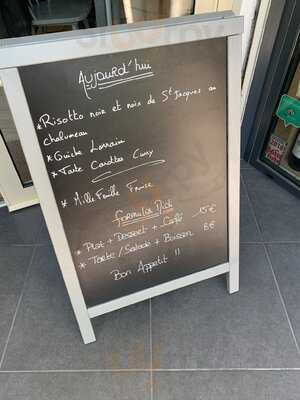 Aujourd'hui
* Risotto noir et noix de St Jacques au
chalumeau
* Quiche Lorrain
* Tarte Carottes Curry
* Mille Feuille Fraise
Formules Midi
* Plat + Dessert + Café 15€
* Tarte/Salade + Boisson 8€
Bon Appetit !!